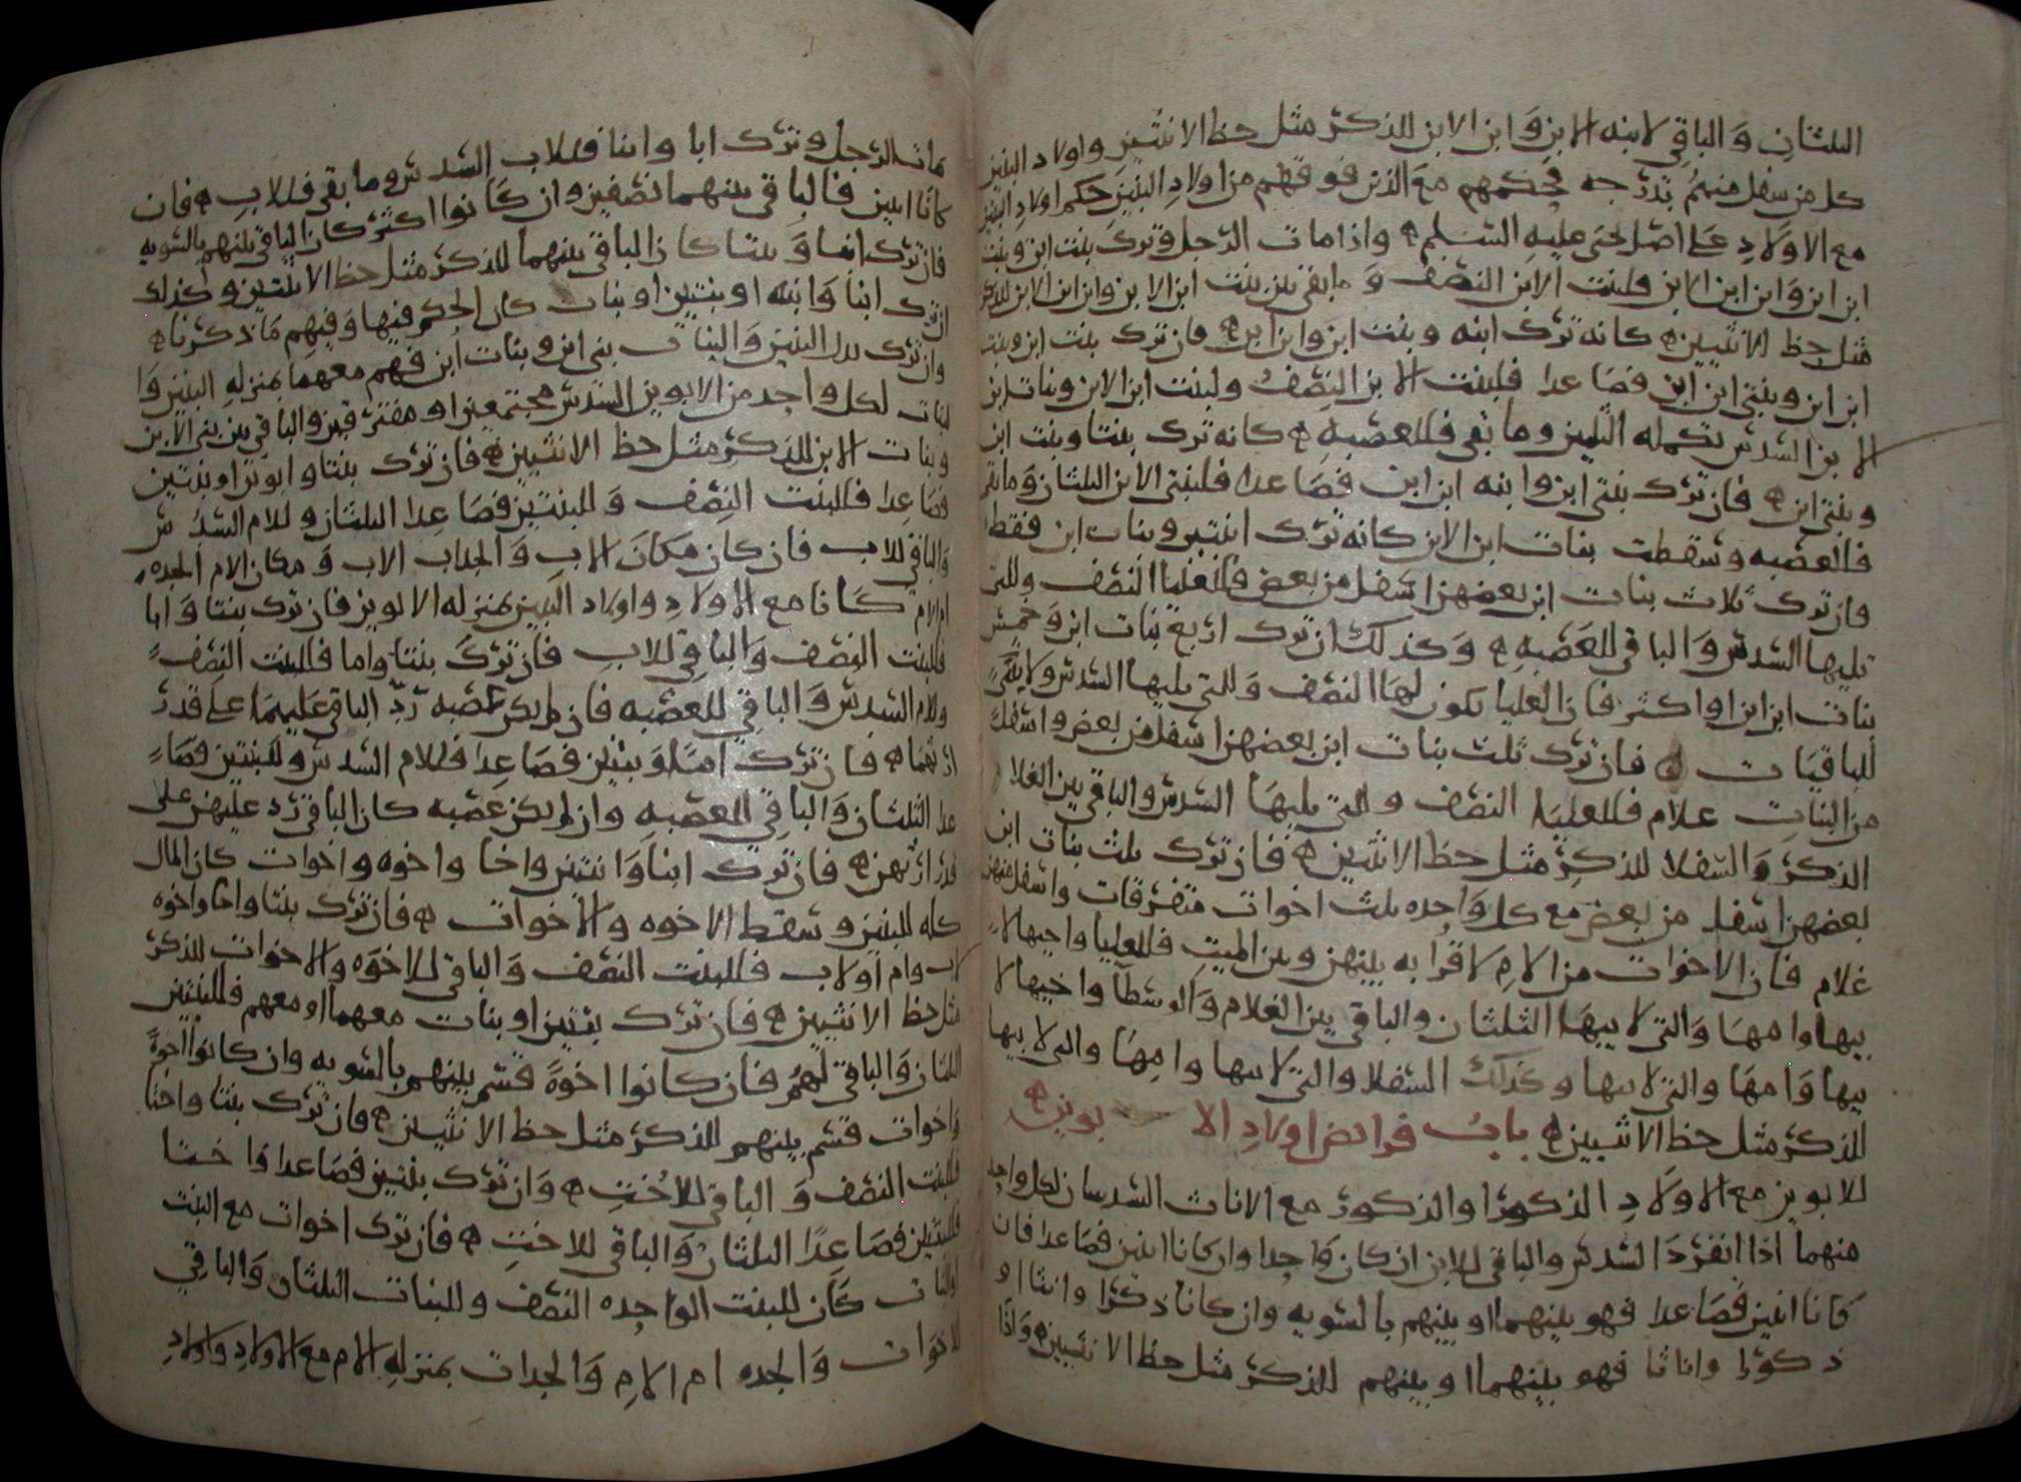 الثلثان وَالباقي لابنه الابن وَابن الابن للذكر مثل حظ الانثيين واولاد البنين
كل من سفل منهم بدرجه فحكمهم مع الذين فوقهم من اولادِ البنين حكم اولادِ البنين
مع الاولادِ على اصل لحيى عليه السلم ه واذا مات الرجل وترك بنت ابن وبنت
ابن ابن وَابن ابن الابن فلبنت الابن النصف وَما بقي بين بنت ابن الابن وابن ابن الابن للذكر
مثل حظ الانثيين ه كانه ترك ابنه وبنت ابن وابن ابن ه فان ترك بنت ابن وبنت
ابن ابن وبنتي ابن ابن فصاعدا فلبنت الابن النصف ولبنت ابن الابن وبنات ابن
الابن السدس تكمله الثلثين وما بقي فللعصبهِ ه كانه ترك بنتا وبنت ابن
وبنتي ابن ه فان ترك بنتي ابن وابنه ابن ابن فصاعدا فلبنتي الابن الثلثان وَما بقي
فالعصبه وسقطت بنات ابن الابن كانه ترك ابنتين وبنات ابن فقط
وان ترك ثلاث بنات ابن بعضهن اسفل من بعض فللعليا النصف وللتي
تليها السدس وَالباقي للعَصَبهِ ه وَكذلك ان ترك اربع بنات ابن وَخمس
بنات ابن ابن او اكثر فان العليا يكون لهَا النصف وَللتي يليها السدس ولا شي
للباقيَات ه فان ترك ثلث بنات ابن بعضهن اسفل من بعض واسفل
من البناتِ غلام فللعليَا النصف وللتي يليهَا السدس والباقي بين الغلام
الذكر وَالسفلا للذكرِ مثل حظ الانثيين ه فان ترك ثلث بنات ابن
بعضهن اسفل من بعض مع كل وَاحده ثلث اخوات متفرقات واسفل منهن
غلام فان الاخوات من الامِ لا قرابه بينهن وبين الميت فللعليا واختها لا
بيها وامهَا وَالتي لابيهَا الثلثان والباقي بين الغلام وَالوسطا واختها لا
بيها وَامهَا والتي لابيها وكذلك السفلا والتي لابيها وامِهَا والتي لابيها
للذكر مثل حظ الانثيين ه باب فرائض اولادِ الابوين ه
للابوين مع الاولادِ الذكور او الذكور مع الاناث السدسان لكل واحد
منهما اذا انفردَ السدس والباقي للابن ان كان وَاحدا وان كانا اثنين فصاعدا فان
كانا اثنين فصَاعدا فهو بينهما او بينهم بالسويه وان كانا ذكرا وانثا او
ذكورا واناثا فهو بينهما او بينهم للذكر مثل حظ الانثيين ه وَاذا
مات الرجل وترك ابا وابنا فللاب السدس وما بقي فللابنِ ه فان
كانا ابنين فالباقي بينهما نصفين وان كَانوا اكثر كان الباقي بينهم بالسويه
فان ترك ابنا وَبنتا كان الباقي بينهما للذكر مثل حظ الانثيين وكذلك
ان ترك ابنا وَابنه او بنتين او بنات كان الحكم فيها وَفيهِم مَا ذكرنا ه
وان ترك بدل البنين وَالبنات بني ابن وبنات ابن فهم معهما بمنزله البنين وَا
لبنات لكل واحد من الابوين السدس مجتمعين او مفترقين والباقي بين بني الابن
وبنات الابن للذكرِ مثل حظ الانثيين ه فان ترك بنتا وابوين او بنتين
فصَاعِدا فللبنت النِصف وَللبنتين فصَاعِدا الثلثان وللام السدس
وَالباقي للاب فان كان مكانَ الابِ وَالجد اب الاب وَمكان الام الجده
ام الام كَانا مع الاولادِ واولاد البنين بمنزله الابوين فان ترك بنتا وَابا
فللبنت النِصف وَالباقِي للابِ فان تركَ بنتا واما فللبنت النِصف
وللام السدس وَالباقي للعصَبه فان لم يكن عصَبه رُدِّ الباقي عَليهمَا على قدر
ارثهما ه فان ترك امًا وَبنتين فصَاعِدا فللام السدس وللبنتين فصَا
عدا الثلثان وَالباقِي للعصَبهِ وان لم يكن عصَبه كان الباقي رد عليهن على
قدر ارثهن ه فان ترك ابنا وَابنتين واخا واخوه واخوات كان المال
كله للبنين وسقط الاخوه والاخوات ه فان ترك بنتا واخا واخوه
لاب وام او لاب فللبنت النصف وَالباقي للاخوه والاخوات للذكر
مثل حظ الانثيين ه فان ترك بنتين او بنات معهما او معهم فللبنتين
الثلثان وَالباقي لهُم فان كانوا اخوَة قسم بينهم بالسويه وان كانوا اخوةً
وَاخوات قسم بينهم للذكر مثل حظ الانثيين ه وان ترك بنتا واختا
فللبنت النصف وَالباقي للاختِ ه وَان ترك بنتين فصَاعدا وَاختا
فللبنتين فصَاعِدًا الثلثان وَالباقي للاختِ ه فان ترك اخوات مع البنت
او البنات كَان للبنت الواحِده النصف وللبنات الثلثان وَالباقِي
للاخوات وَالجده ام الامِ وَالجدات بمنزلهِ الام مع الاولادِ وَاولادِ